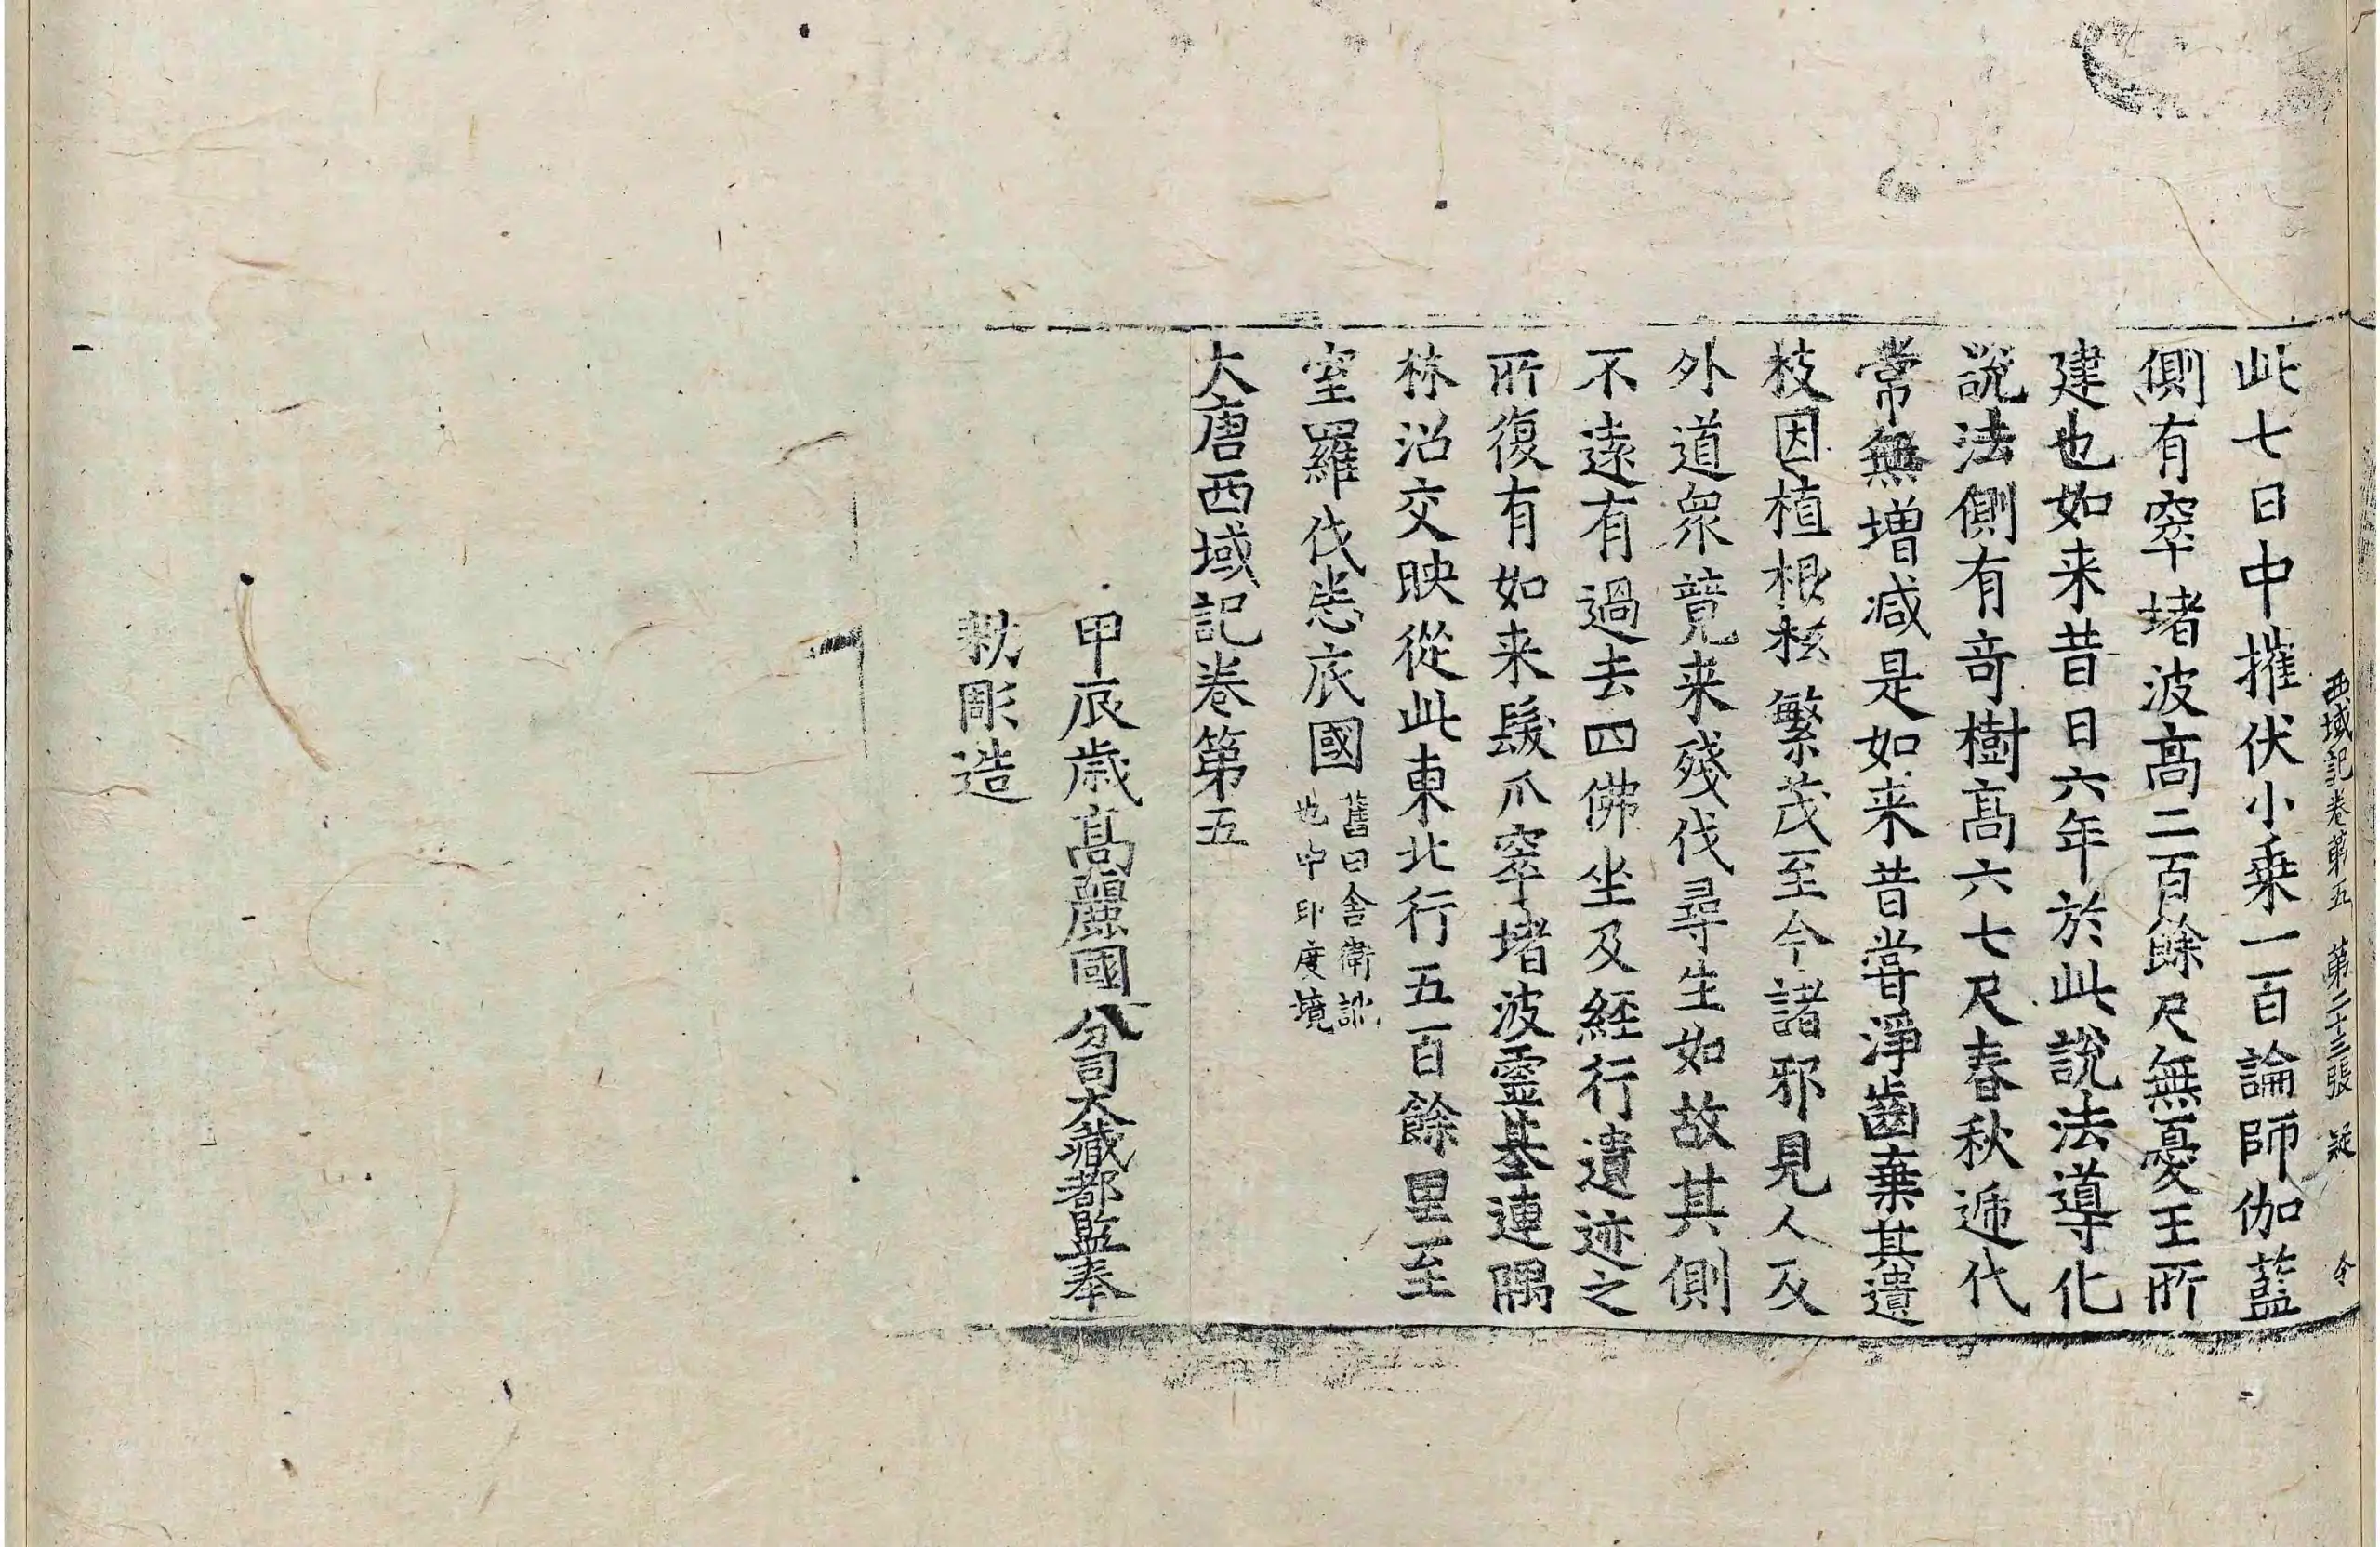 西域記卷第五 第二十三張 疑 令
此七日中摧伏小乗一百論師伽藍
側有窣堵波髙二百餘尺無憂王所
建也如来昔日六年於此說法導化
說法側有竒樹髙六七尺春秋遞代
常無增减是如来昔甞淨齒棄其遺
枝因植根柢繁茂至今諸邪見人及
外道衆競来殘伐尋生如故其側
不遠有過去四佛坐及経行遺迹之
所復有如来髮爪窣堵波靈基連隅
林沼交映從此東北行五百餘里至
室羅伐悉底國 舊曰舎衛訛
也中印度境
大唐西域記卷第五
甲辰歳髙麗國分司大藏都監奉
勑彫造